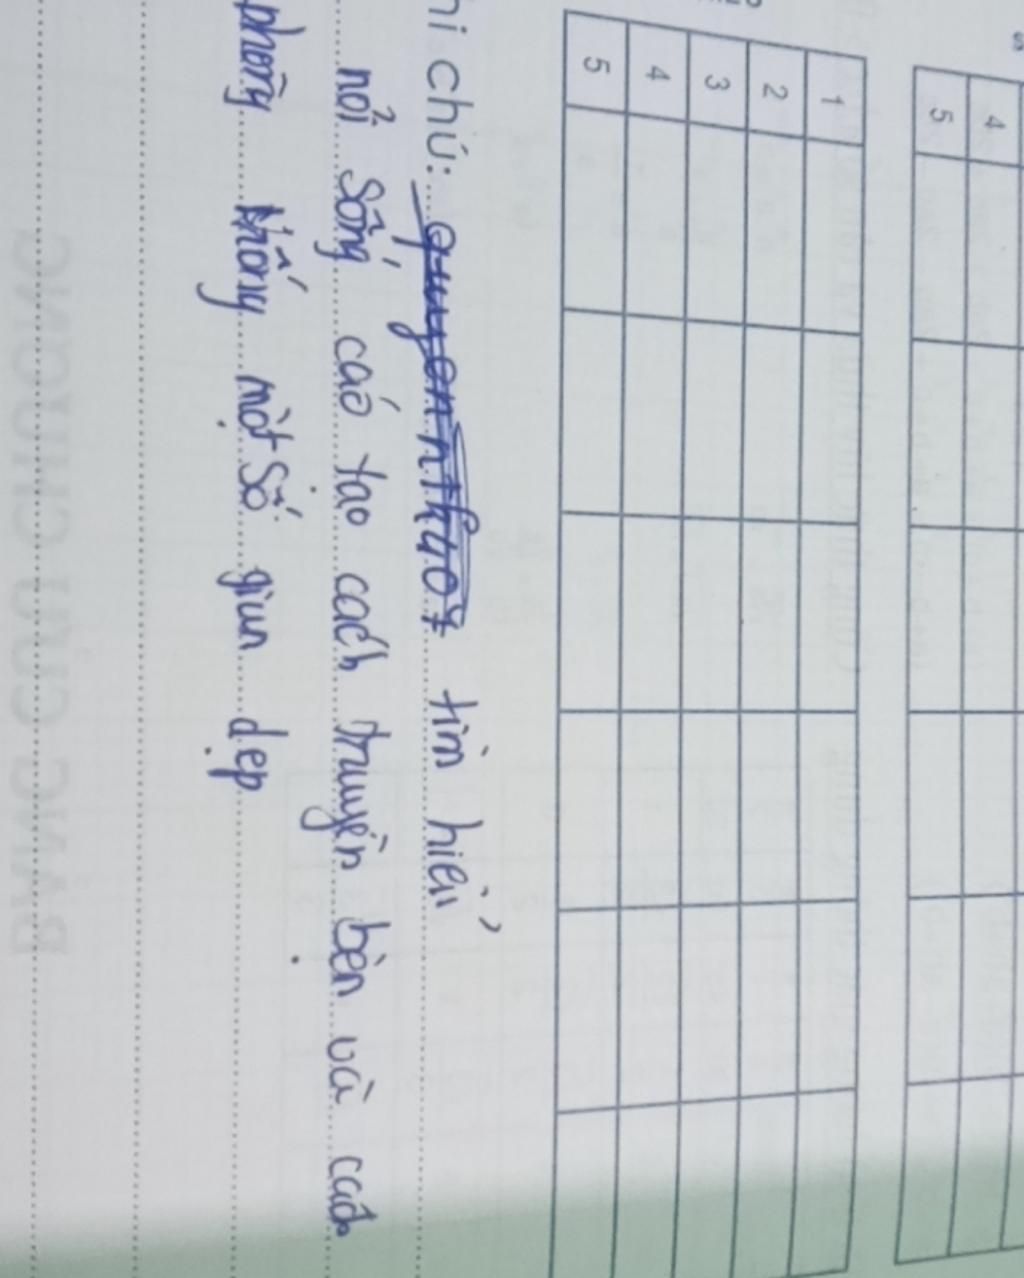 4
5
1
2
3
4
5
hi chú: tìm hiểu
nổi sống cáó tạo cách truyền bện và cách
phòng khống một số giun dẹp
BẢNG CỬU CHƯƠNG